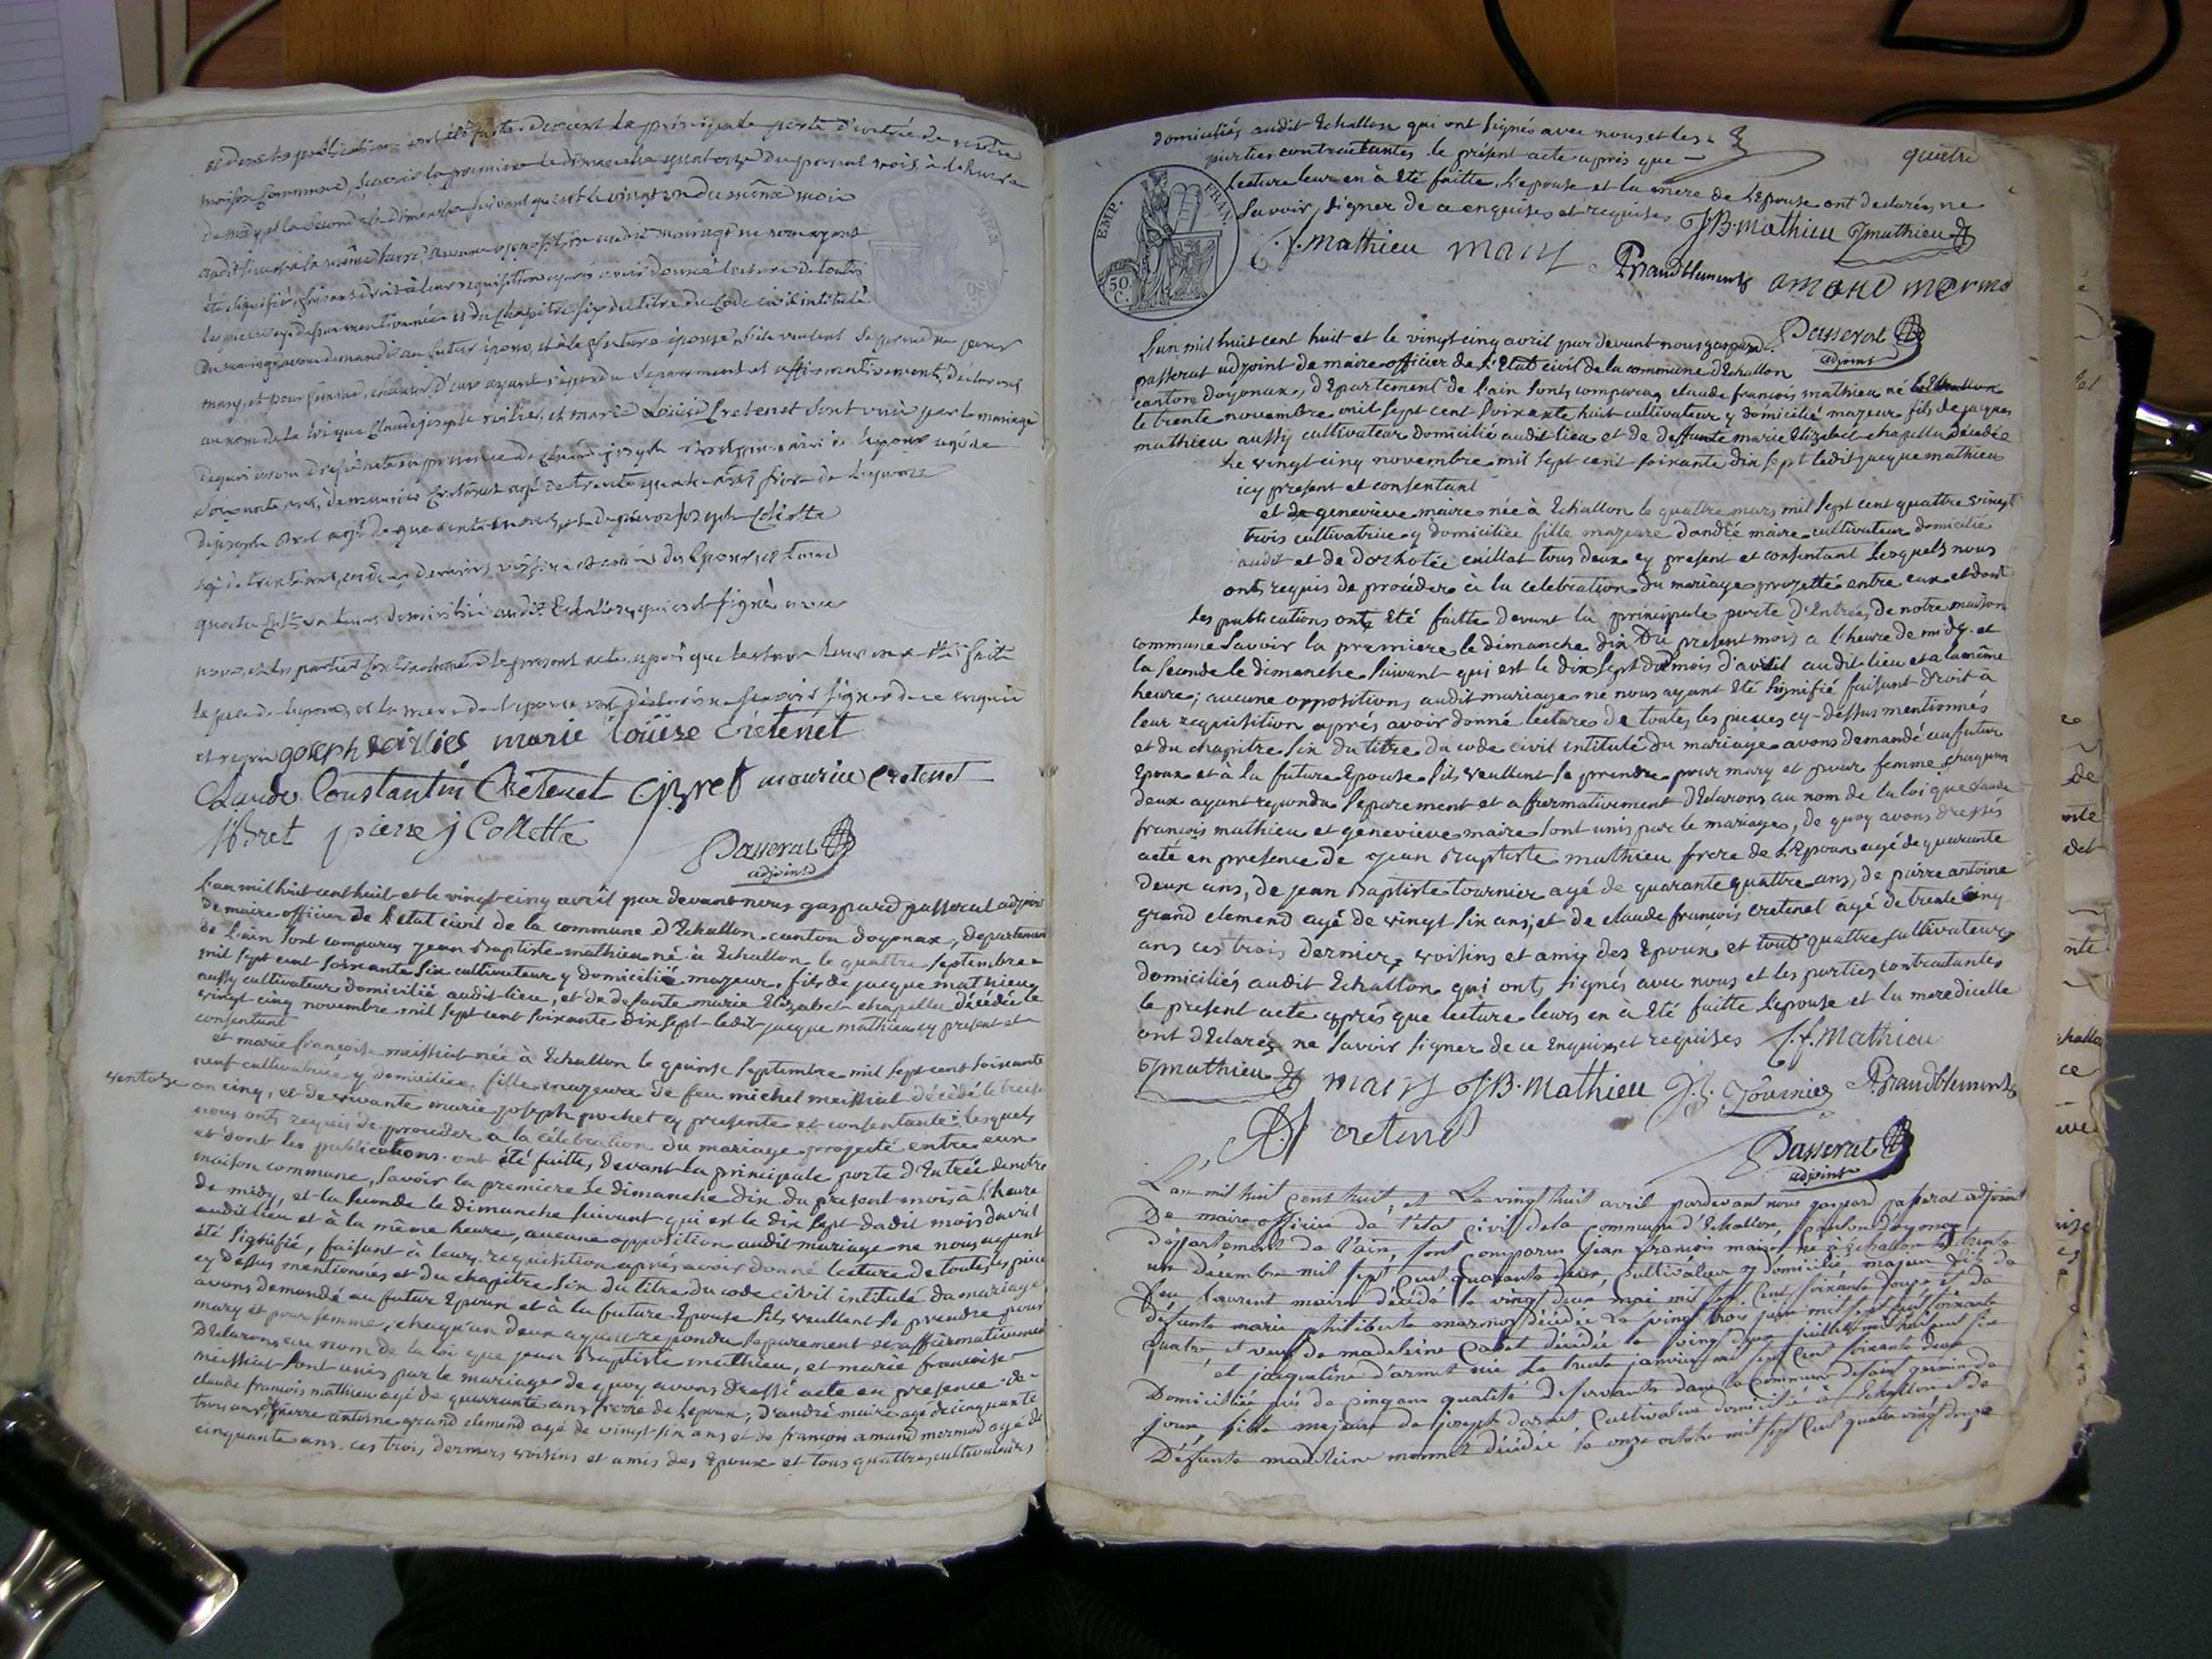 et dont les publications ont été faites devant la principale porte d'entrée de notre
maison commune, scavoir la premiere le dimanche du present mois, à l'heure
de midy et la seconde le dimanche suivant qui est le vingt un du même mois
audit lieu et à la même heure, aucune opposition audit mariage ne nous ayant
été signifié, faisant droit à leur requisition après avoir donné lecture de toutes
les pieces cy dessus mentionnées et du chapitre six du titre du Code civil intitulé
du mariage avons demandé au futur époux, et à la future épouse s'ils veulent se prendre pour
mary, et pour femme, chacun d'eux ayant répondu séparement et affirmativement, déclarons
au nom de la loi que Claude joseph et marie Louise Cretenet sont unis par le mariage
de quoi avons dressé acte en presence de
soixante ans, de maurice Cretenet agé de trente quatre ans frere de l'epouse
de joseph Bret agé de et de pierre joseph Collette
agé de trente ans, ces deux derniers voisins et amis des Epoux, et tous
quatre cultivateurs domiciliés audit Echallon, qui ont signé avec
nous, et les parties Contractantes le present acte après que lecture leur en a été faite
le pere de l'epoux, et la mere de l'epouse ont déclaré ne scavoir signer de ce enquis
et requis joseph marie loüise Cretenet
Claude Constantin Cretenet Cj Bret maurice Cretenet
JBret pierre j Collette
Passerat
adjoint
L'an mil huit cent huit et le vingt cinq avril par devant nous gaspard passerat adjoint
de maire officier de l'état civil de la commune d'Echallon canton doyonax, departement
de l'ain sont comparus jean Baptiste mathieu né à Echallon le quattre septembre
mil sept cent soixante six cultivateur y domicilié majeur fils de jacque mathieu
aussy cultivateur domicilié audit lieu, et de defunte marie Elizabet chapellu décédée le
vingt cinq novembre mil sept cent soixante dix sept ledit jacque mathieu cy present et
consentant
et marie francoise meissiat née à Echallon le quinse septembre mil sept cent soixante
neuf cultivatrice y domiciliée fille majeure de feu michel meissiat décédé le treise
ventose an cinq, et de vivante marie joseph pochet cy presente et consentante lesquels
nous ont requis de proceder a la célébration du mariage projeté entre eux
et dont les publications ont été faittes devant la principale porte d'Entrée de notre
maison commune, savoir la premiere le dimanche dix du present mois à l'heure
de midy, et la seconde le dimanche suivant qui est le dix sept dudit mois davril
audit lieu et à la même heure, aucune opposition audit mariage ne nous ayant
été signifié, faisant à leurs requisition après avoir donné lecture de toutes les pieces
cy dessus mentionnés et du chapitre six du titre du code civil intitulé du mariage
avons demandé au futur Epoux et à la future Epouse s'ils veullent se prendre pour
mary et pour femme, chaqu'un deux ayant repondu separement et affirmativement
Déclarons au nom de la loi que jean Baptiste mathieu, et marie francoise
meissiat sont unis par le mariage de quoy avons dressé acte en presence de
claude francois mathieu agé de quarante ans frere de l'epoux, d'andré maire agé de cinquante
trois ans, pierre antoine grand clemend agé de vingt six ans et de francois amand mermod agé de
cinquante ans ces trois derniers voisins et amis des Epoux et tous quattres cultivateurs
quatre
domiciliés audit Echallon qui ont signés avec nous et les
parties contractantes le présent acte après que
lecture leur en à été faitte, l'epouse et la mere de l'Epouse ont declarés ne
Savoir signer de ce enquises et requises JB. mathieu Jmathieu
C. f. Mathieu mairé PAgrandClement amand mermod
EMP. FRAN.
50 C.
Passerat
adjoint
L'an mil huit cent huit et le vingt cinq avril par devant nous gaspard
passerat adjoint de maire officier de l'Etat civil de la commune dEchallon
canton doyonax, dEpartement de l'ain sont comparus claude françois mathieu né
le trente novembre mil sept cent soixante huit cultivateur y domicilié majeur fils de jacques
mathieu aussy cultivateur domicilié audit lieu et de deffunte marie Elizabet chapellu décédée
le vingt cinq novembre mil sept cent soixante dix sept ledit jacque mathieu
icy present et consentant
et de genevieve maire née à Echallon le quattre mars mil sept cent quattre vingt
trois cultivatrice y domiciliée fille majeure dandré maire cultivateur domicilié
audit et de dorhotée caillat tous deux cy present et consentant lesquels nous
ont requis de procéder à la celebration du mariage projetté entre eux et dont
les publications ont été faitte devant la principale porte d'Entrée de notre maison
commune savoir la premiere le dimanche dix du present mois a l'heure de midy et
la seconde le dimanche suivant qui est le dix sept du mois d'avril audit lieu et a la même
heure; aucune oppositions audit mariage ne nous ayant été signifié faisant droit a
leur requisition après avoir donné lectures de toutes les pieces cy-dessus mentionnés
et du chapitre six du titre du code civil intitulé du mariage avons demandé au futur
Epoux et à la future Epouse s'ils veullent se prendre pour mary et pour femme chaqu'un
deux ayant repondu separement et affirmativement dEclarons au nom de la loi que claude
francois mathieu et genevieve maire sont unis par le mariage, de quoy avons dressés
acte en presence de jean Baptiste mathieu frere de l'Epoux agé de quarante
deux ans, de jean Baptiste tournier agé de quarante quattre ans, de pierre antoine
grand clemend agé de vingt six ans, et de claude francois cretenet agé de trente cinq
ans ces trois dernier voisins et amis des Epoux et tout quattre cultivateurs
domiciliés audit Echallon qui ont signés avec nous et les parties contractantes
le present acte après que lecture leurs en à été faitte l'epouse et la mere dicelle
ont déclarés ne savoir signer de ce enquises et requises C. f. Mathieu
Jmathieu mairé JB. Mathieu J. B. Tournier PAgrandClement
cretenet
Passerat
adjoint
L'an mil huit Cent huit, et Le vingt huit avril pardevant nous gaspard passerat adjoint
De maire officier de l'état Civil de la Commune d'Echallon, Canton d'oyonax,
département de l'ain, sont Comparus jean francois maire né à Echallon le trente
un decembre mil sept Cent quarante deux, Cultivateur y domicilié majeur fils de
feu laurent maire décédé le vingt deux mai mil sept Cent soixante douze et de
défunte marie philiberte mermod décédée le vingt trois juin mil sept Cent soixante
quatre et veuf de madeleine décédée le vingt deux juillet mil huit cent six
et jacqueline d'armet née le trente janvier mil sept Cent soixante deux
Domiciliée près de cinq ans qualité deservante dans la commune de saint germain de
joux, fille majeure de joseph darmet Cultivateur domicilié à Echallon et de
Défunte madeleine décédée le onze octobre mil sept Cent quatre vingt douze